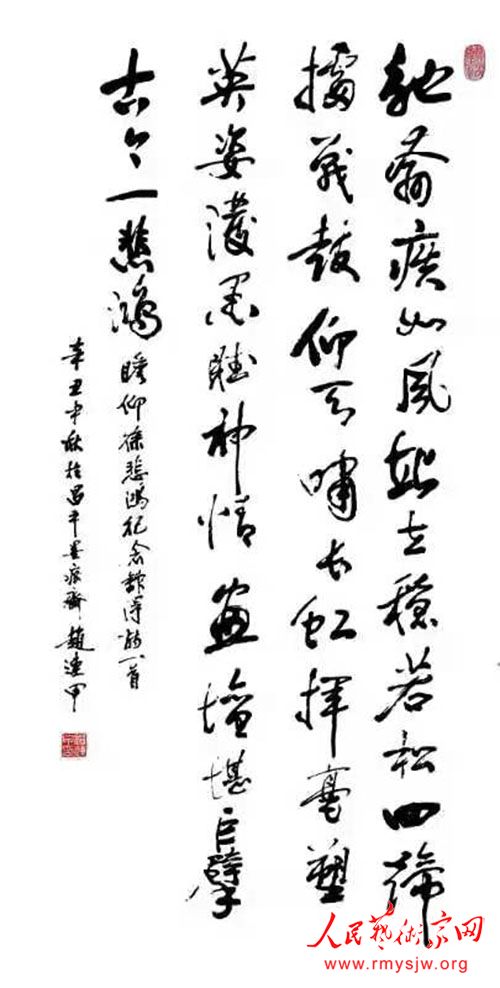 驰疾如风站立稳若松四蹄
擂战鼓仰天嘯长虹挥毫塑
英姿泼墨赋神情画坛堪巨擘
古今一悲鸿
瞻仰徐悲鸿纪念舘得韵一首
辛丑中秋於昌平墨斋赵连甲
人民艺术家网
www.rmysjw.org